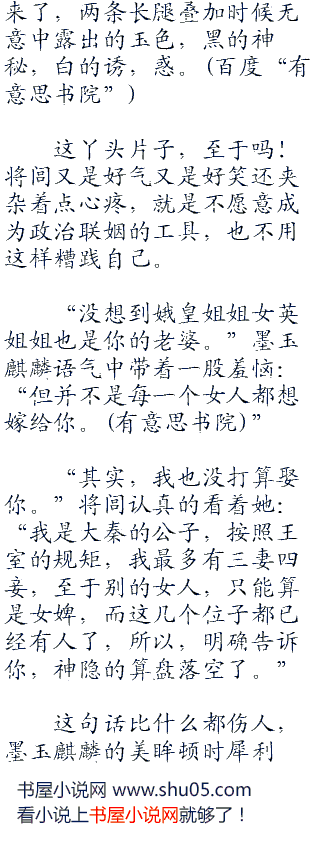 来了，两条长腿叠加时候无
意中露出的玉色，黑的神
秘，白的诱，惑。(百度“有
意思书院”)
这丫头片子，至于吗！
将闾又是好气又是好笑还夹
杂着点心疼，就是不愿意成
为政治联姻的工具，也不用
这样糟践自己。
“没想到娥皇姐姐女英
姐姐也是你的老婆。”墨玉
麒麟语气中带着一股羞恼：
“但并不是每一个女人都想
嫁给你。(有意思书院)”
“其实，我也没打算娶
你。”将闾认真的看着她：
“我是大秦的公子，按照王
室的规矩，我最多有三妻四
妾，至于别的女人，只能算
是女婢，而这几个位子都已
经有人了，所以，明确告诉
你，神隐的算盘落空了。”
这句话比什么都伤人，
墨玉麒麟的美眸顿时犀利
书屋小说网 www.shu05.com
看小说上书屋小说网就够了！